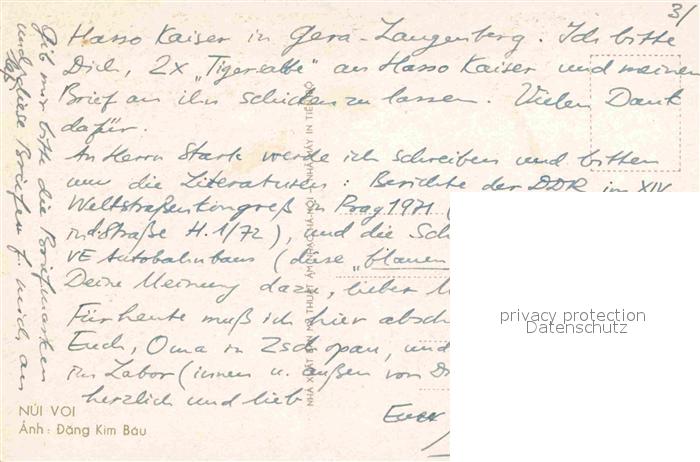 3/
Hasso Kaiser in Gera-Langenberg. Ich bitte
Dich, 2x „Tigersalbe" an Hasso Kaiser und meinen
Brief an ihn schicken zu lassen. Vielen Dank
dafür.
An Herrn Stark werde ich schreiben und bitten
um die Literaturen: Berichte der DDR im XIV.
Weltstraßenkongreß in Prag 1971 (
in d. Straße H. 1/72), und die Sch
VE Autobahnbaus (diese „blauen
Deine Meinung dazu, lieber
Für heute muß ich hier absch
Euch, Oma in Zschopau, und
im Labor (innen u. außen von
herzlich und lieb
Euer
Gib mir bitte die Briefmarken
und diese Briefen f. mich an
NÚI VOI
Ảnh: Đặng Kim Báu
privacy protection
Datenschutz